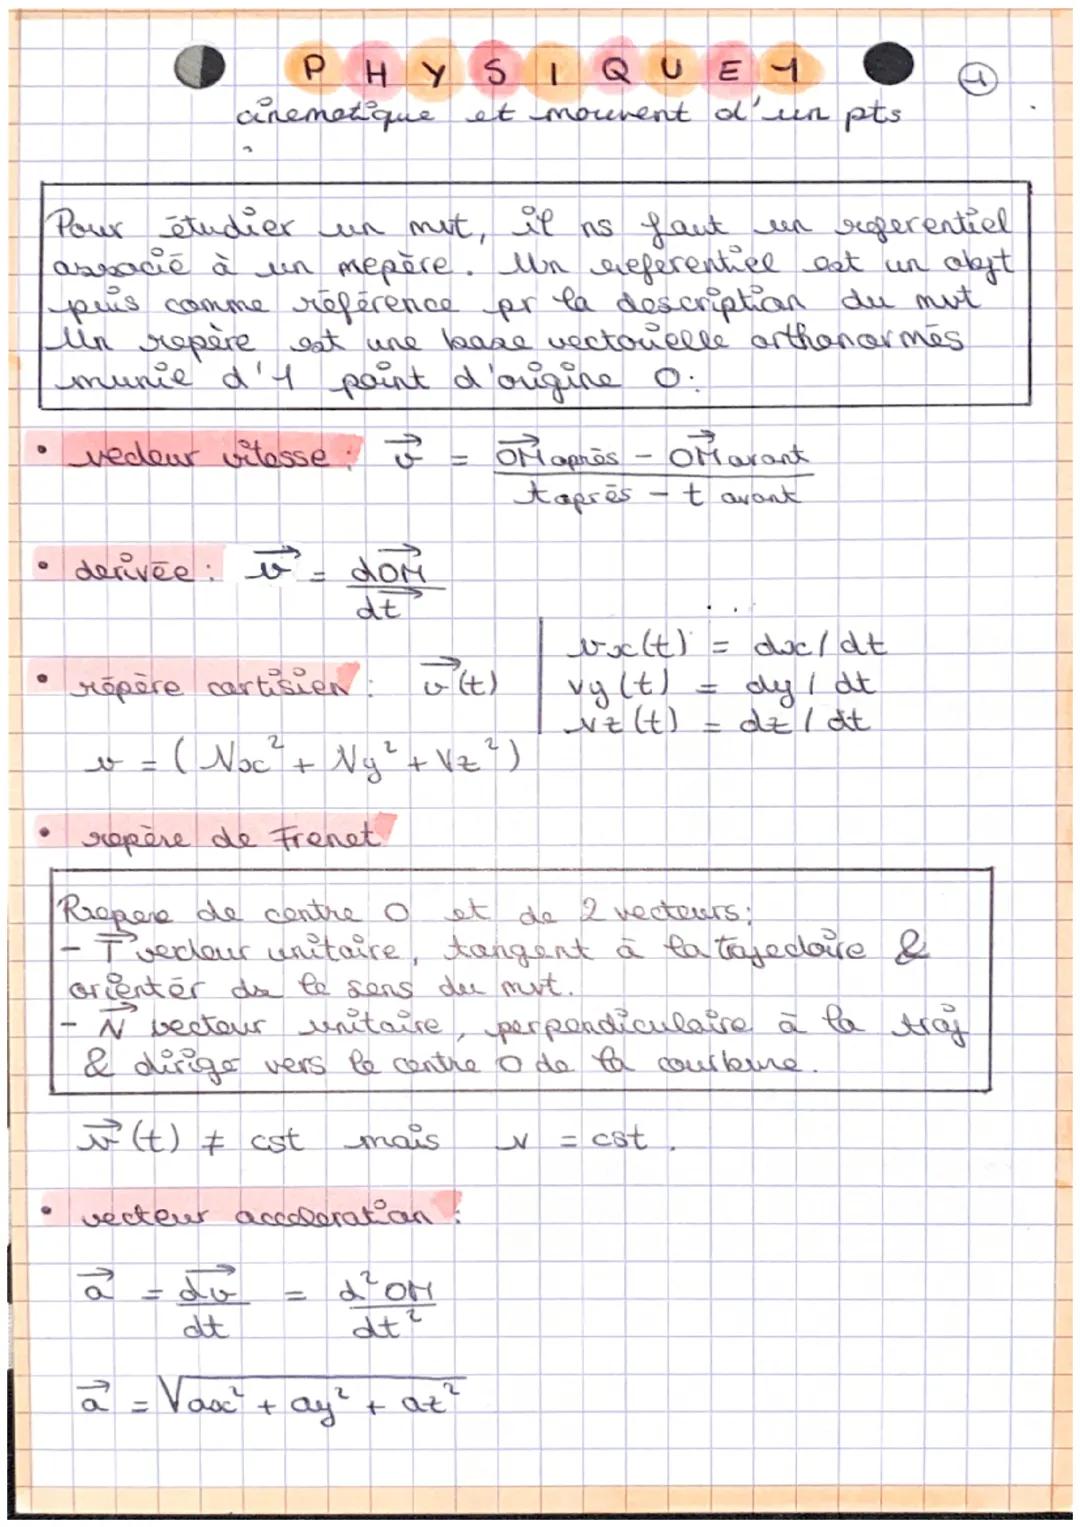 PHYSIQUE 1
1
cinematique et mouvent d'un pts
Pour étudier un mvt, il ns faut un referentiel
associé à un repère. Un referentiel est un objt
puis comme référence pr la description du mvt
Un repère est une base vectorielle orthonormés
munie d'1 point d'origine O:
• vecteur vitesse : v⃗ = (OM⃗ après - OM⃗ avant) / (t après - t avant)
• derivée : v⃗ = dOM⃗ / dt⃗
• répère cartisien : v⃗(t) | vx(t) = dx / dt
vy(t) = dy / dt
vz(t) = dz / dt
v = (Vx² + Vy² + Vz²)
• repère de Frenet
Repere de centre O et de 2 vecteurs:
- T⃗ vecteur unitaire, tangent à la trajectoire &
orientér ds le sens du mvt.
- N⃗ vecteur unitaire, perpendiculaire à la traj
& dirige vers le centre O de la courbure.
v⃗(t) ≠ cst mais v = cst.
• vecteur acceleration :
a⃗ = dv⃗ / dt = d²OM / dt²
a⃗ = √ax² + ay² + az²